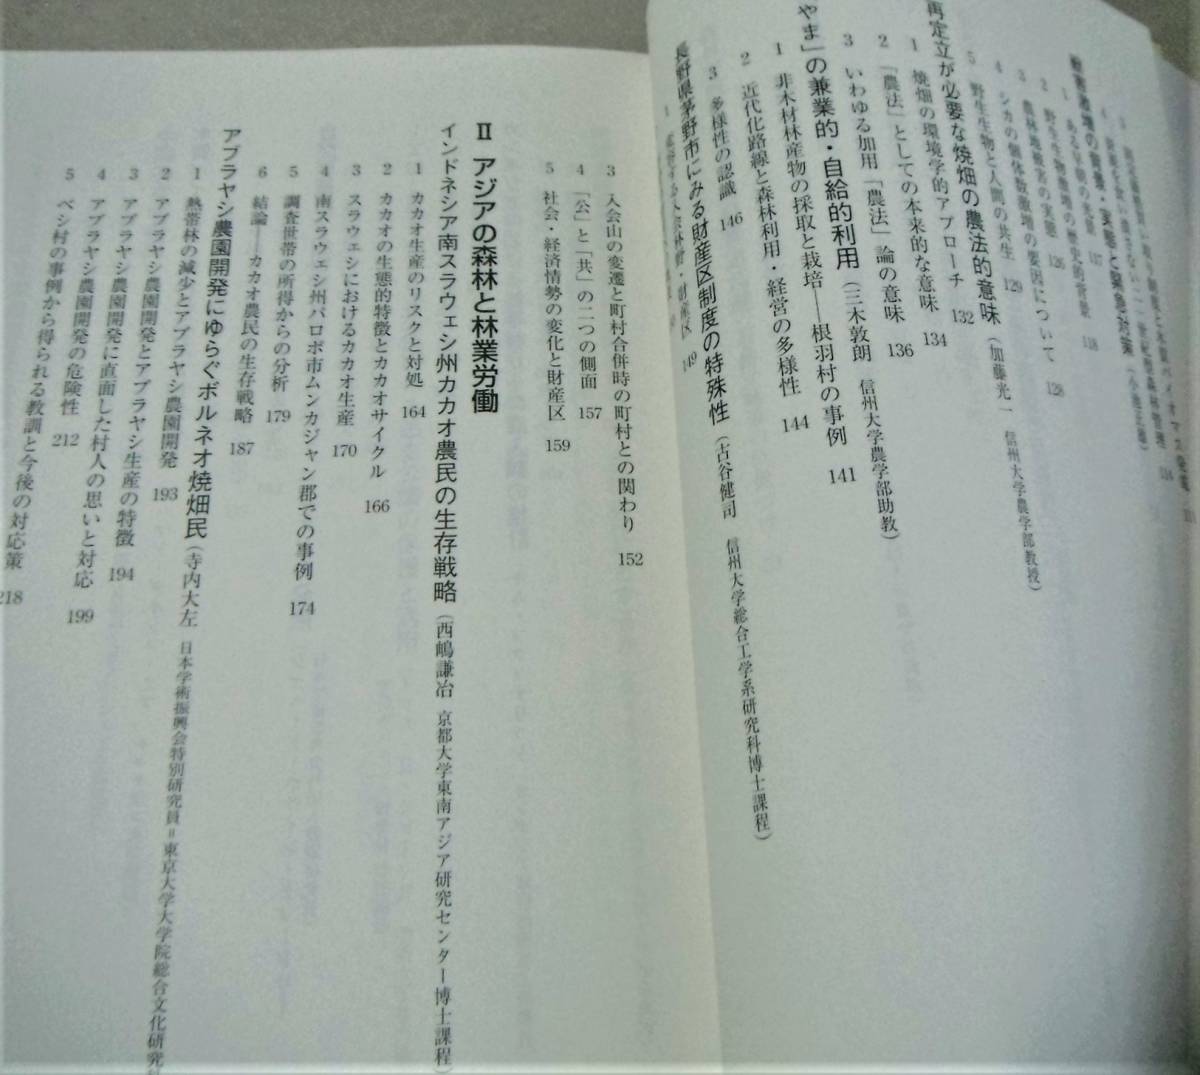 獣害激増の背景・実態と緊急対策
1 ある早朝の光景 117
2 野生生物激増の歴史的背景 118
3 農林地被害の実態 126
4 シカの個体数激増の要因について 128
5 野生生物と人間の共生 129
再定立が必要な焼畑の農法的意味 (加藤光一 信州大学農学部教授)
1 焼畑の環境学的アプローチ 132
2 「農法」としての本来的な意味 134
3 いわゆる加用「農法」論の意味 136
やま」の兼業的・自給的利用 (三木敦朗 信州大学農学部助教)
1 非木材林産物の採取と栽培――根羽村の事例 141
2 近代化路線と森林利用・経営の多様性 144
3 多様性の認識 146
長野県茅野市にみる財産区制度の特殊性 (古谷健司 信州大学総合工学系研究科博士課程)
149
3 入会山の変遷と町村合併時の町村との関わり 152
4 「公」と「共」の二つの側面 157
5 社会・経済情勢の変化と財産区 159
II アジアの森林と林業労働
インドネシア南スラウェシ州カカオ農民の生存戦略 (西嶋謙治 京都大学東南アジア研究センター博士課程)
1 カカオ生産のリスクと対処 164
2 カカオの生態的特徴とカカオサイクル 166
3 スラウェシにおけるカカオ生産 170
4 南スラウェシ州パロポ市ムンカジャン郡での事例 174
5 調査世帯の所得からの分析 179
6 結論――カカオ農民の生存戦略 187
アブラヤシ農園開発にゆらぐボルネオ焼畑民 (寺内大左 日本学術振興会特別研究員=東京大学大学院総合文化研究
1 熱帯林の減少とアブラヤシ農園開発 193
2 アブラヤシ農園開発とアブラヤシ生産の特徴 194
3 アブラヤシ農園開発に直面した村人の思いと対応 199
4 アブラヤシ農園開発の危険性 212
5 ベシ村の事例から得られる教訓と今後の対応策 218